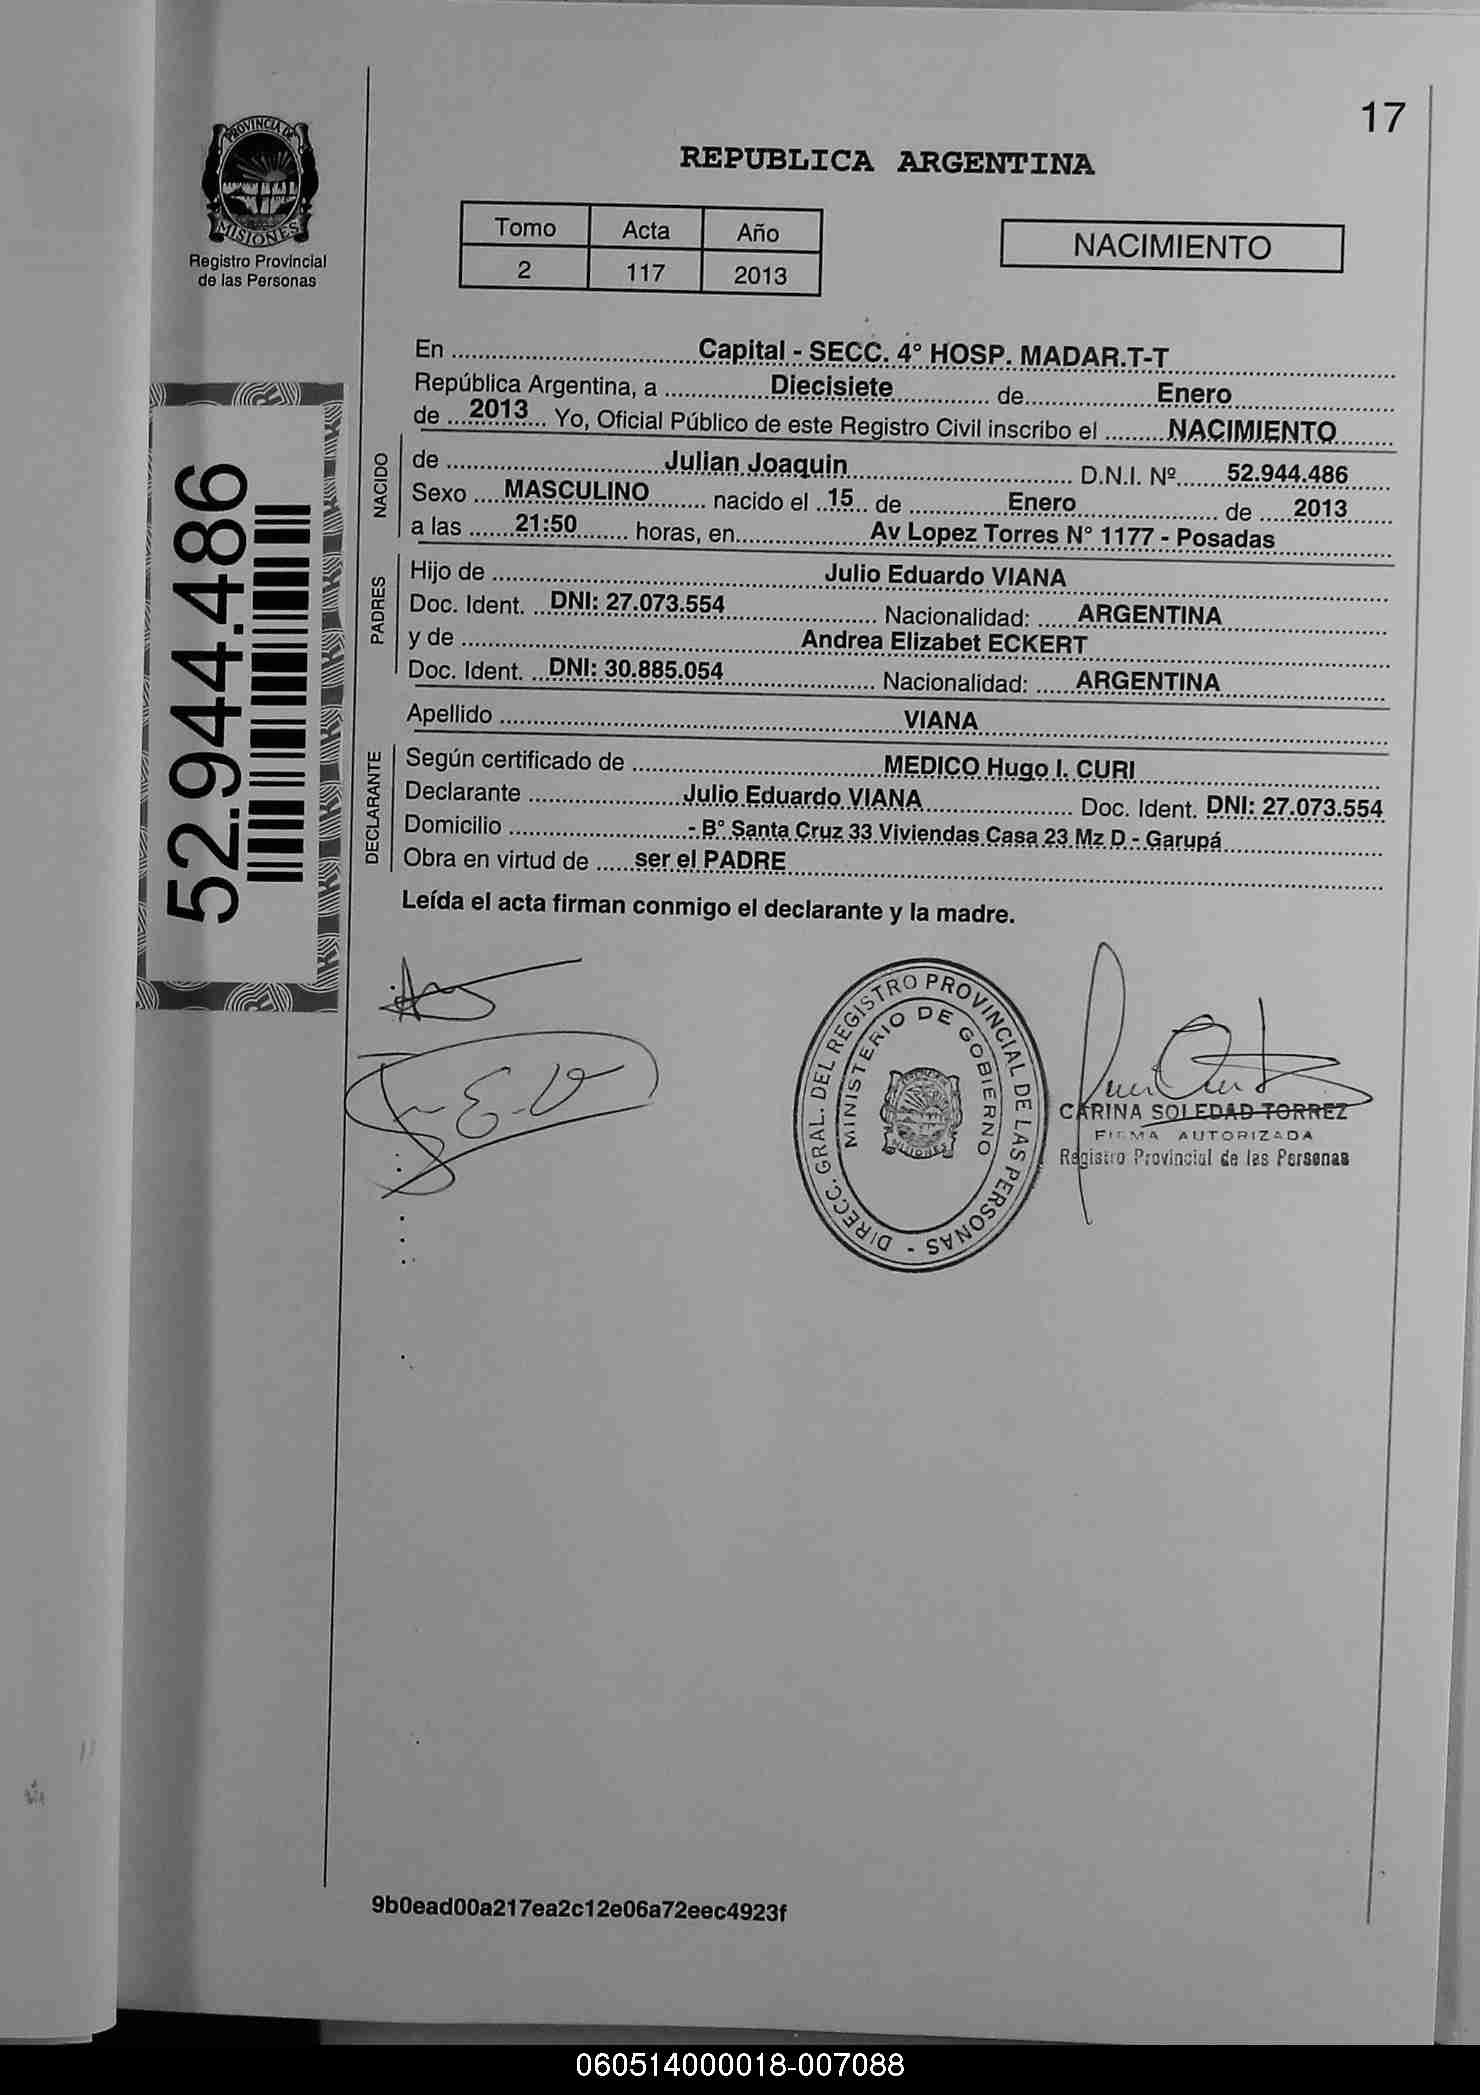 17
PROVINCIA DE
MISIONES
Registro Provincial
de las Personas
REPUBLICA ARGENTINA
Tomo Acta Año
2 117 2013
NACIMIENTO
52.944.486
En ........ Capital - SECC. 4° HOSP. MADAR.T-T
República Argentina, a ........ Diecisiete ........ de ........ Enero ........
de ... 2013 ... Yo, Oficial Público de este Registro Civil inscribo el ........ NACIMIENTO ........
NACIDO
de ........ Julian Joaquin ........ D.N.I. Nº ...... 52.944.486 ......
Sexo .... MASCULINO ........ nacido el .. 15 .. de ........ Enero ........ de .... 2013 ......
a las ...... 21:50 ........ horas, en ........ Av Lopez Torres N° 1177 - Posadas ........
PADRES
Hijo de ........ Julio Eduardo VIANA ........
Doc. Ident. .. DNI: 27.073.554 ........ Nacionalidad: ..... ARGENTINA ........
y de ........ Andrea Elizabet ECKERT ........
Doc. Ident. .. DNI: 30.885.054 ........ Nacionalidad: ..... ARGENTINA ........
Apellido ........ VIANA ........
DECLARANTE
Según certificado de ........ MEDICO Hugo I. CURI ........
Declarante ........ Julio Eduardo VIANA ........ Doc. Ident. DNI: 27.073.554
Domicilio ........ - B° Santa Cruz 33 Viviendas Casa 23 Mz D - Garupá ........
Obra en virtud de ..... ser el PADRE ........
Leída el acta firman conmigo el declarante y la madre.
DIRECC. GRAL. DEL REGISTRO PROVINCIAL DE LAS PERSONAS -
MINISTERIO DE GOBIERNO
MISIONES
CARINA SOLEDAD TORREZ
FIRMA AUTORIZADA
Registro Provincial de las Personas
9b0ead00a217ea2c12e06a72eec4923f
060514000018-007088